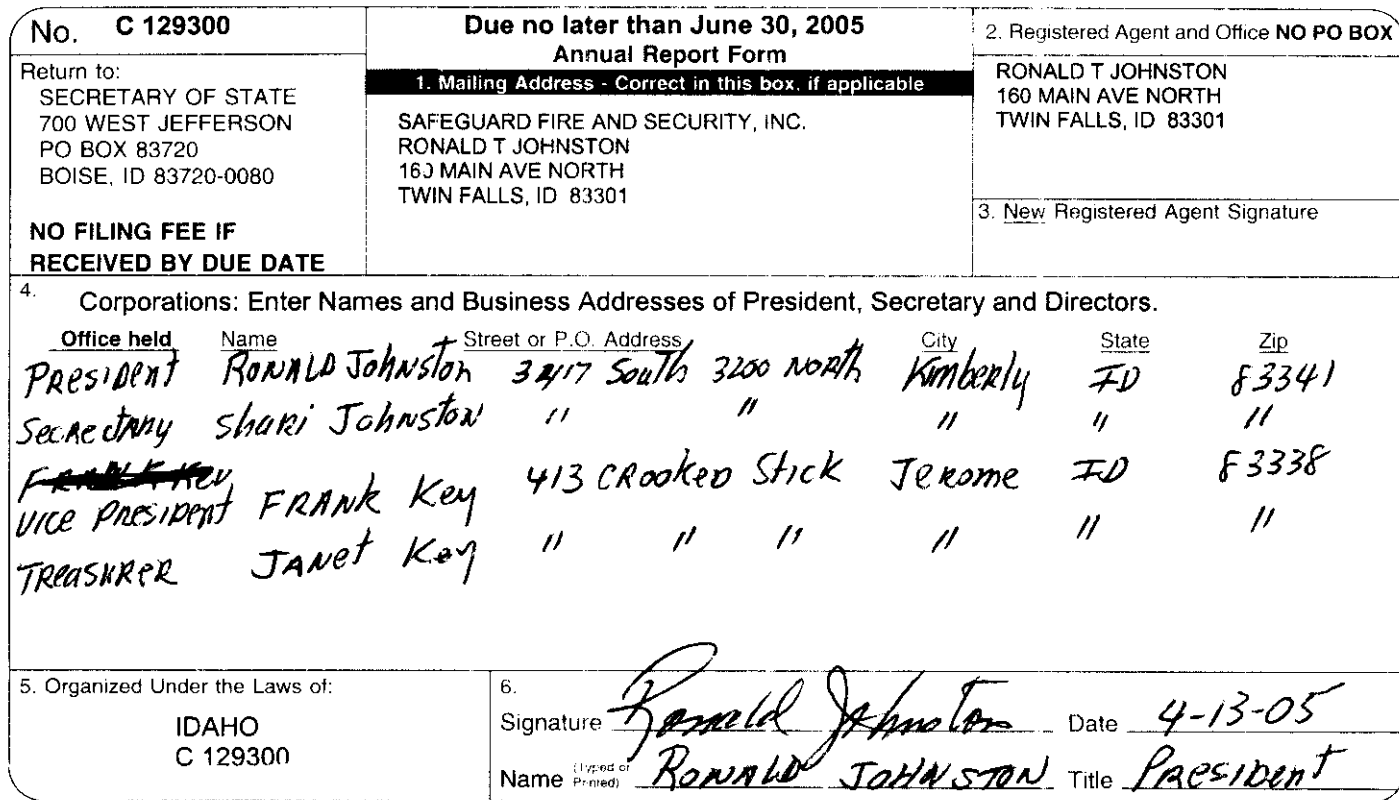 No. C 129300
Return to:
SECRETARY OF STATE
700 WEST JEFFERSON
PO BOX 83720
BOISE, ID 83720-0080
NO FILING FEE IF
RECEIVED BY DUE DATE
Due no later than June 30, 2005
Annual Report Form
1. Mailing Address - Correct in this box, if applicable
SAFEGUARD FIRE AND SECURITY, INC.
RONALD T JOHNSTON
160 MAIN AVE NORTH
TWIN FALLS, ID 83301
2. Registered Agent and Office NO PO BOX
RONALD T JOHNSTON
160 MAIN AVE NORTH
TWIN FALLS, ID 83301
3. New Registered Agent Signature
4. Corporations: Enter Names and Business Addresses of President, Secretary and Directors.
Office held Name Street or P.O. Address City State Zip
President Ronald Johnston South 3200 North Kimberly ID 83341
Secrectary Shari Johnston " " " " "
Vice President Frank Key 413 Crooked Stick Jerome ID 83338
Treasurer Janet Key " " " " " "
5. Organized Under the Laws of:
IDAHO
C 129300
6.
Signature Ronald Johnston Date 4-13-05
Name (Typed or Printed) Ronald Johnston Title President